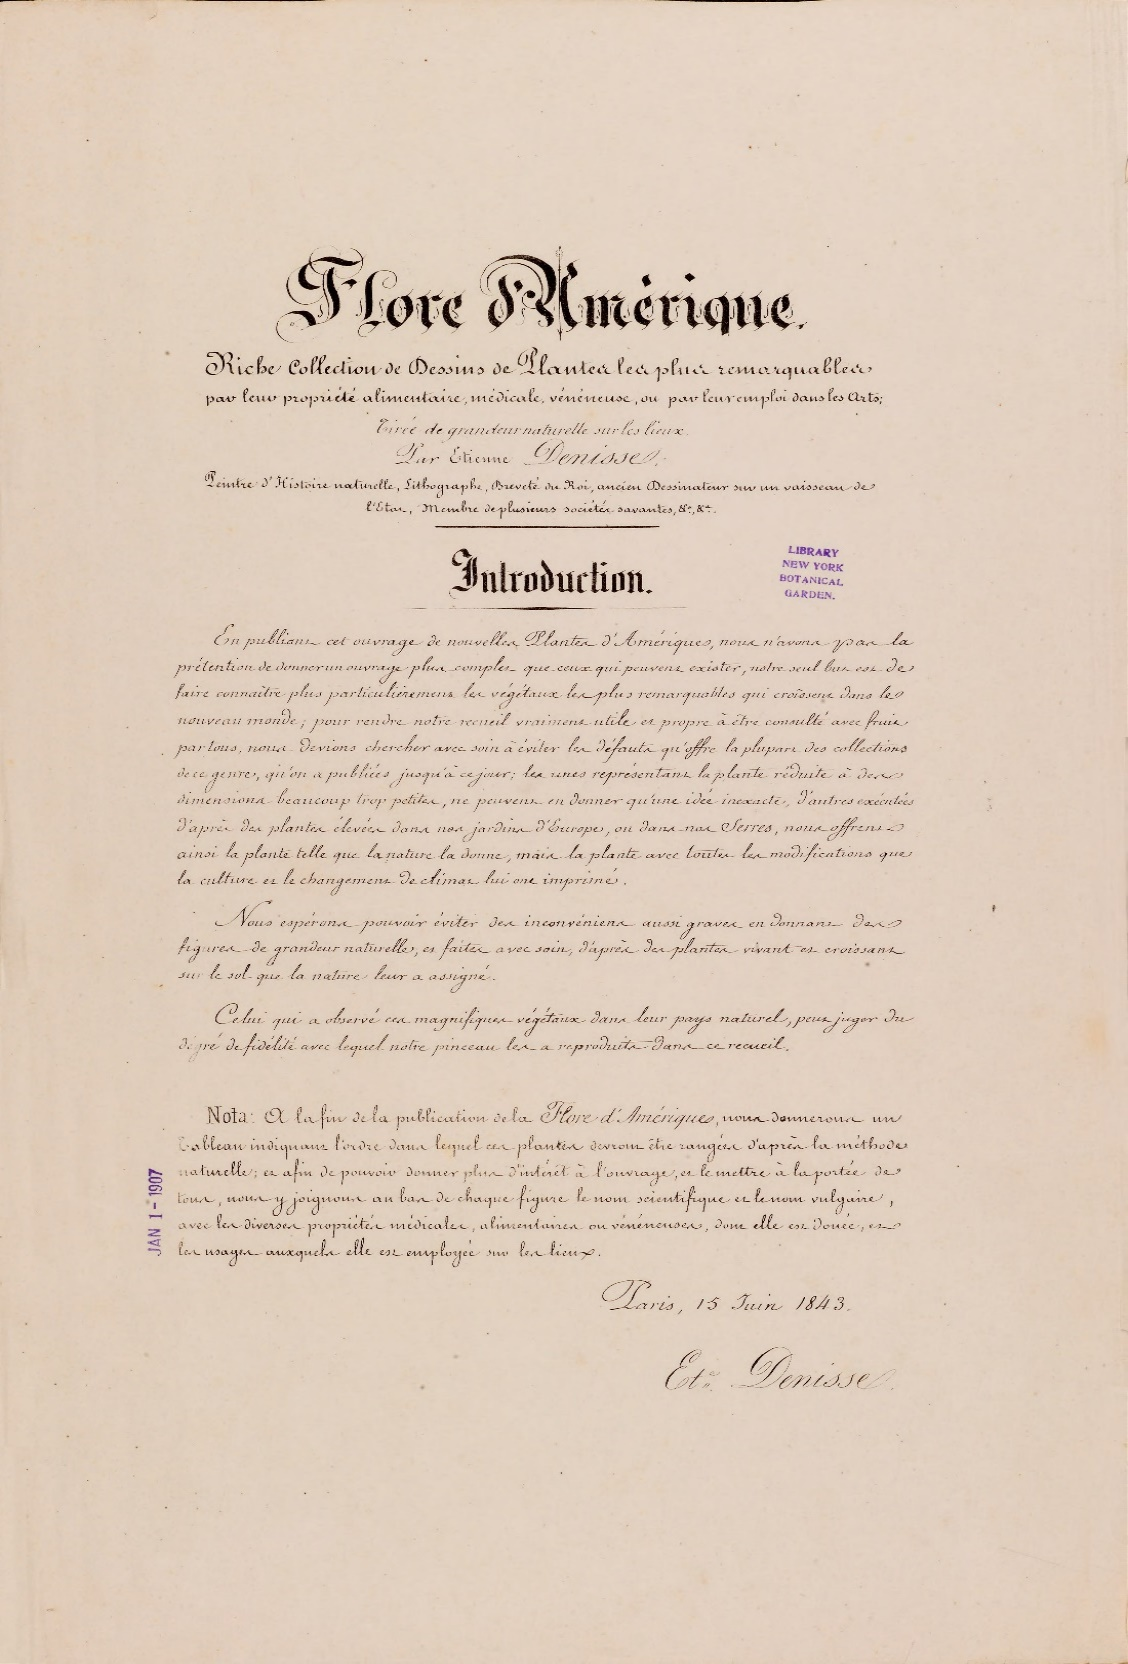 Flore d'Amérique.
Riche Collection de Dessins de Plantes les plus remarquables
par leur propriété alimentaire, médicale, vénéneuse, ou par leur emploi dans les Arts;
Tirée de grandeur naturelle sur les lieux.
Par Etienne Denisse.
Peintre d'Histoire naturelle, Lithographe, Breveté du Roi, ancien Dessinateur sur un vaisseau de
l'Etat, Membre de plusieurs sociétés savantes, &c, &c.
Introduction.
LIBRARY
NEW YORK
BOTANICAL
GARDEN.
En publiant cet ouvrage de nouvelles Plantes d'Amérique, nous n'avons pas la
prétention de donner un ouvrage plus complet que ceux qui peuvent exister, notre seul but est de
faire connaître plus particulièrement les végétaux les plus remarquables qui croissent dans le
nouveau monde; pour rendre notre recueil vraiment utile et propre à être consulté avec fruit
par tous, nous devions chercher avec soin à éviter les défauts qu'offre la plupart des collections
de ce genre, qu'on a publiées jusqu'à ce jour; les unes représentant la plante réduite à des
dimensions beaucoup trop petites, ne peuvent en donner qu'une idée inexacte, d'autres exécutées
d'après des plantes élevées dans nos jardins d'Europe, ou dans nos Serres, nous offrent
ainsi la plante telle que la nature la donne, mais la plante avec toutes les modifications que
la culture et le changement de climat lui ont imprimé.
Nous espérons pouvoir éviter des inconvéniens aussi graves en donnant des
figures de grandeur naturelle, et faites avec soin, d'après des plantes vivant et croissant
sur le sol que la nature leur a assigné.
Celui qui a observé ces magnifiques végétaux dans leur pays naturel, peut juger du
dégré de fidélité avec lequel notre pinceau les a reproduits dans ce recueil.
Nota: A la fin de la publication de la Flore d'Amérique, nous donnerons un
Tableau indiquant l'ordre dans lequel ces plantes devront être rangées d'après la méthode
naturelle; et afin de pouvoir donner plus d'intérêt à l'ouvrage, et le mettre à la portée de
tous, nous y joignons au bas de chaque figure le nom scientifique et le nom vulgaire,
avec les diverses propriétés médicales, alimentaires ou vénéneuses, dont elle est douée, et
les usages auxquels elle est employée sur les lieux.
JAN 1-1907
Paris, 15 Juin 1843.
Ete. Denisse.